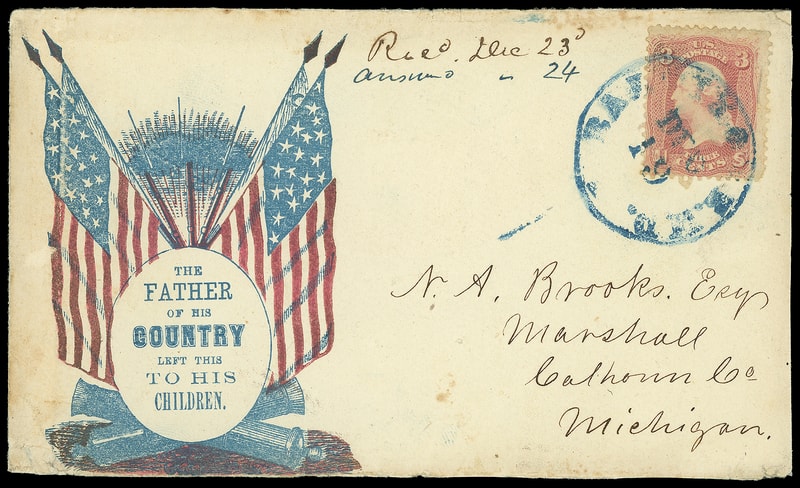 Recd. Dec 23d
Answd " 24
U.S. POSTAGE 3
THREE CENTS
DEC
19
THE
FATHER
OF HIS
COUNTRY
LEFT THIS
TO HIS
CHILDREN.
N. A. Brooks. Esq
Marshall
Calhoun Co
Michigan.